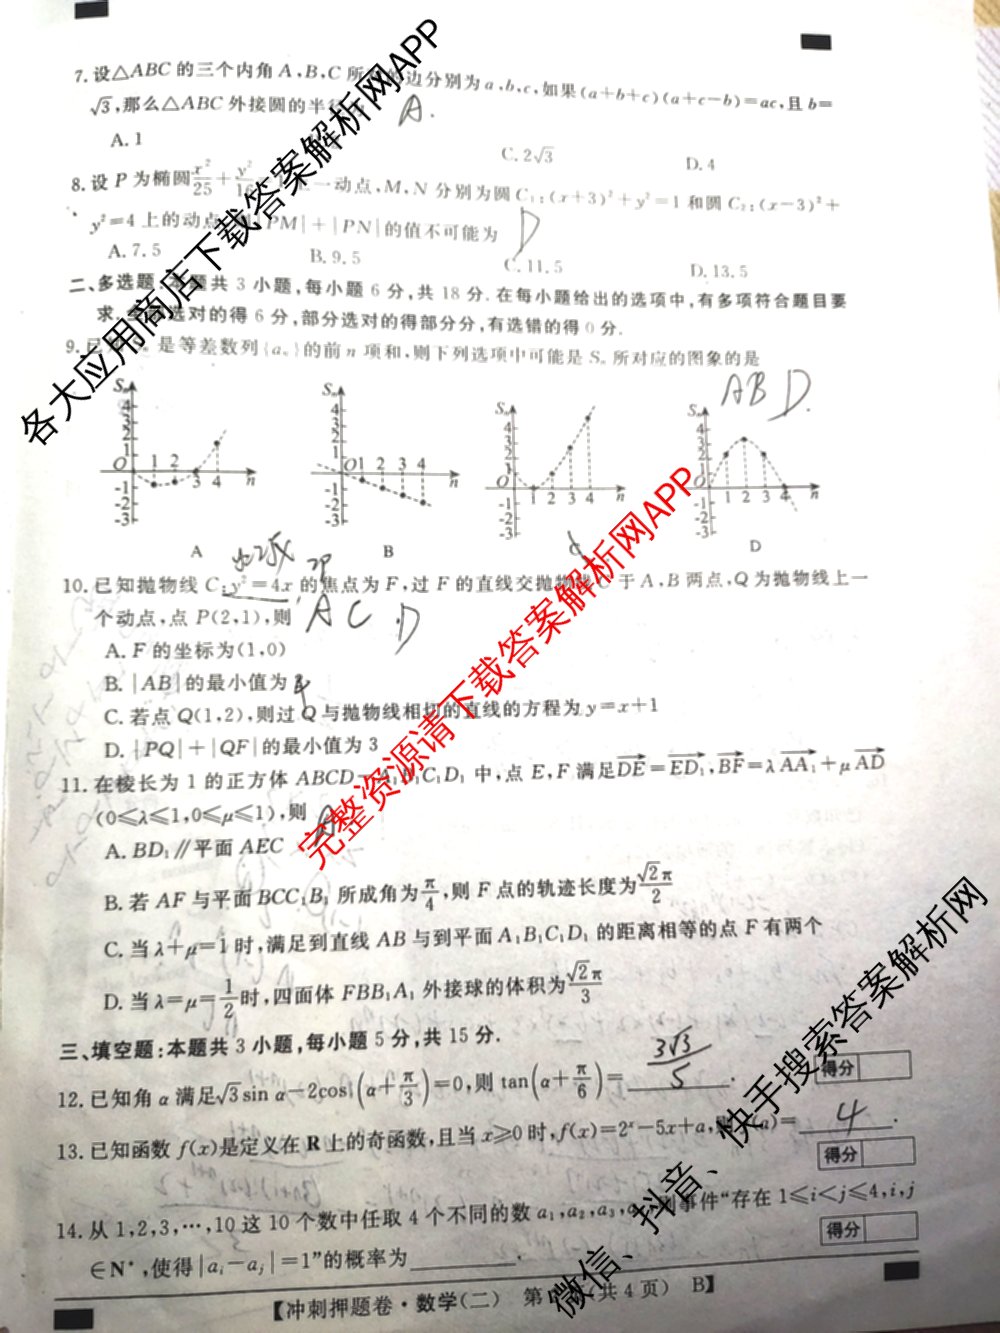 7.设△ABC的三个内角A,B,C所 的边分别为a,b,c,如果(a+b+c)(a+c-b)=ac,且b=
√3,那么△ABC外接圆的半径 A.
A.1 C.2√3 D.4
8.设P为椭圆x²/25+y²/16 一动点,M,N分别为圆C₁:(x+3)²+y²=1和圆C₂:(x-3)²+
y²=4上的动点, |PM|+|PN|的值不可能为 D
A.7.5 B.9.5 C.11.5 D.13.5
二、多选题:本题共3小题,每小题6分,共18分.在每小题给出的选项中,有多项符合题目要
求.全部选对的得6分,部分选对的得部分分,有选错的得0分.
9.已知Sₙ是等差数列{aₙ}的前n项和,则下列选项中可能是Sₙ所对应的图象的是
ABD.
Sₙ 4 3 2 1 O 1 2 3 4 n -1 -2 -3
Sₙ 4 3 2 1 O 1 2 3 4 n -1 -2 -3
Sₙ 4 3 2 1 O 1 2 3 4 n -1 -2 -3
Sₙ 4 3 2 1 O 1 2 3 4 n -1 -2 -3
A B C D
10.已知抛物线C:y²=4x的焦点为F,过F的直线交抛物线C于A,B两点,Q为抛物线上一
个动点,点P(2,1),则 ACD
A.F的坐标为(1,0)
B.|AB|的最小值为
C.若点Q(1,2),则过Q与抛物线相切的直线的方程为y=x+1
D.|PQ|+|QF|的最小值为3
11.在棱长为1的正方体ABCD-A₁B₁C₁D₁中,点E,F满足DE=ED₁,BF=λAA₁+μAD
(0≤λ≤1,0≤μ≤1),则
A.BD₁∥平面AEC
B.若AF与平面BCC₁B₁所成角为π/4,则F点的轨迹长度为√2π/2
C.当λ+μ=1时,满足到直线AB与到平面A₁B₁C₁D₁的距离相等的点F有两个
D.当λ=μ=1/2时,四面体FBB₁A₁外接球的体积为√2π/3
三、填空题:本题共3小题,每小题5分,共15分.
12.已知角α满足√3sin α-2cos(α+π/3)=0,则tan(α+π/6)=3√3/5.
得分
13.已知函数f(x)是定义在R上的奇函数,且当x≥0时,f(x)=2ˣ-5x+a, (a)=4.
得分
14.从1,2,3,…,10这10个数中任取4个不同的数a₁,a₂,a₃, 则事件“存在1≤i<j≤4,i,j
∈N*,使得|aᵢ-aⱼ|=1”的概率为 .
得分
【冲刺押题卷·数学(二) 第 (共4页) B】
各大应用商店下载答案解析网APP
完整资源请下载答案解析网APP
微信、抖音、快手搜索答案解析网